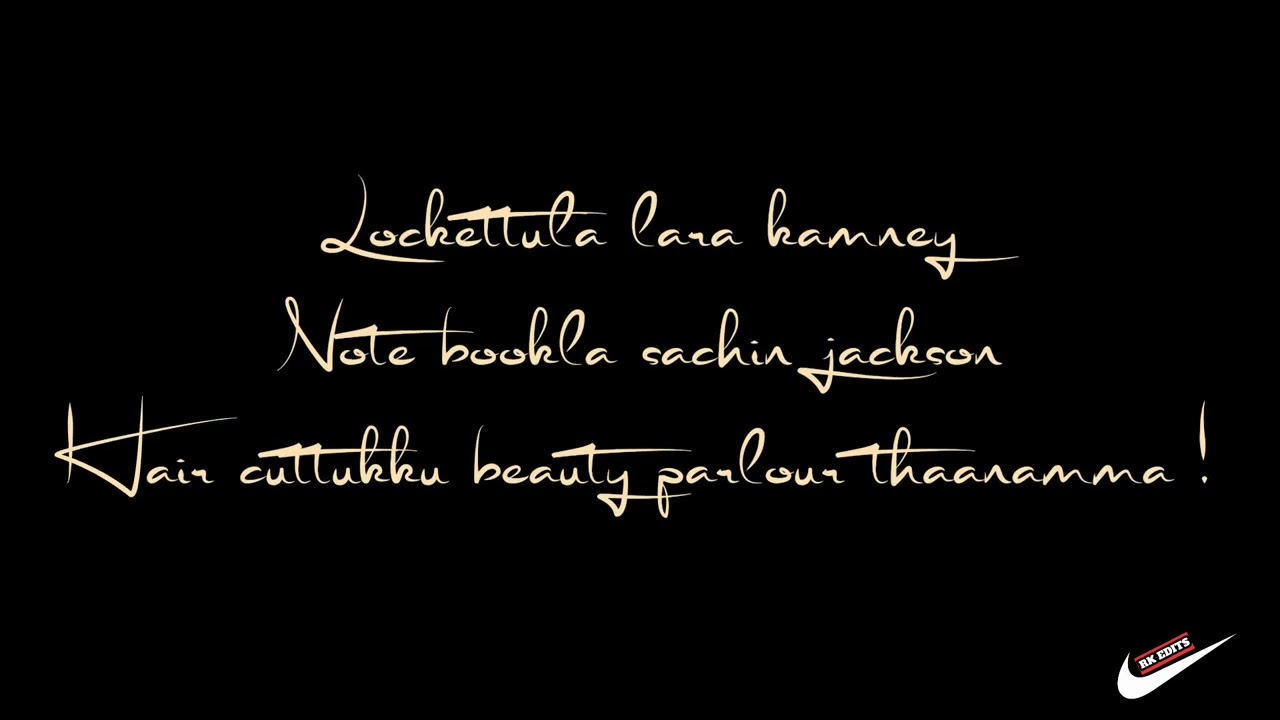 Lockettula lara kamney
Note bookla sachin jackson
Hair cuttukku beauty parlour thaanamma !
RK EDITS